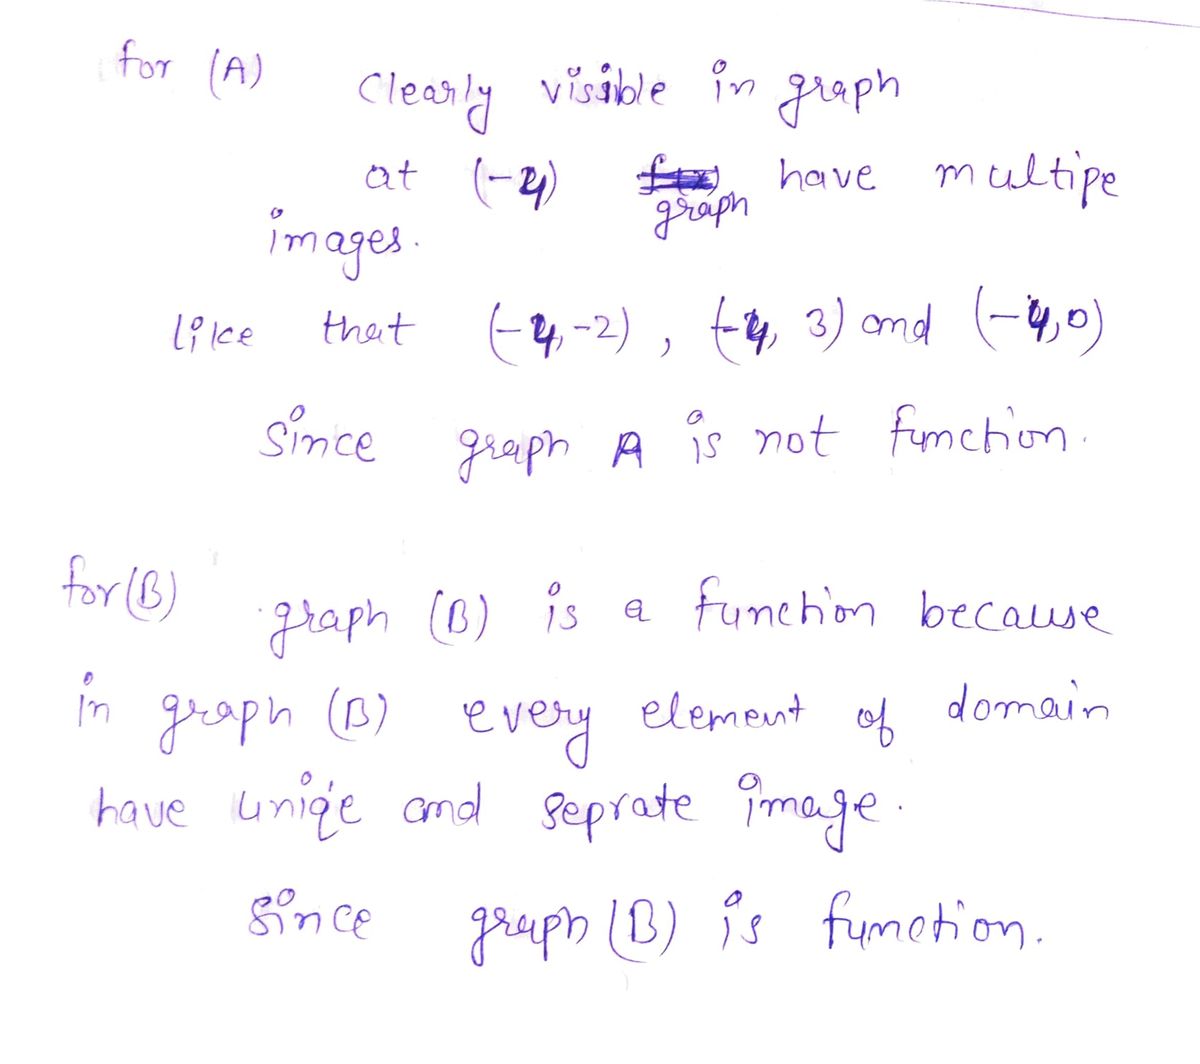 for (A)
Clearly visible in graph
at (-4) graph have multipe
images.
like that (-4,-2), (-4, 3) and (-4,0)
Since graph A is not function.
for (B)
graph (B) is a function because
in graph (B) every element of domain
have uniqe and seprate image.
Since graph (B) is function.